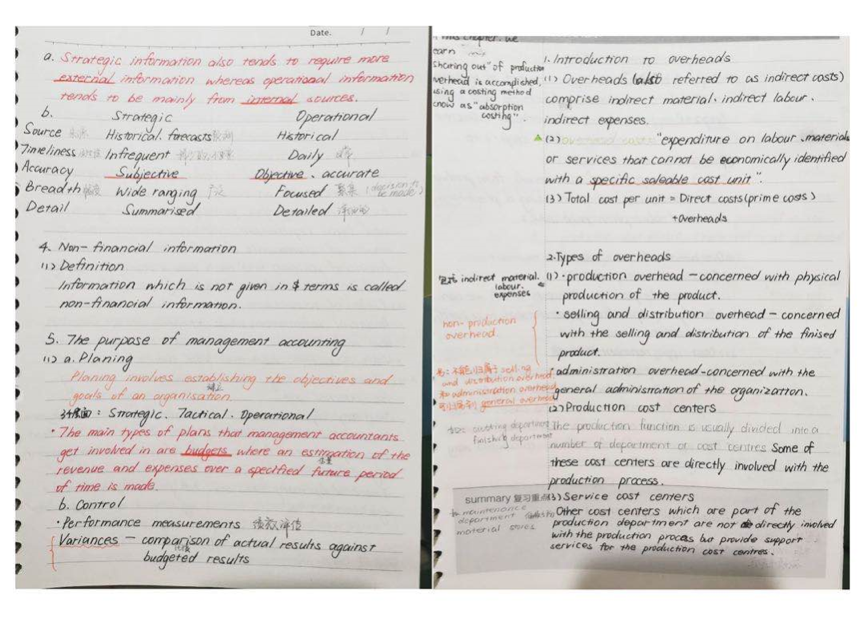 Date. / /
a. Strategic information also tends to require more
external information whereas operational information
tends to be mainly from internal sources.
b. Strategic Operational
Source Historical. forecasts Historical
Timeliness Infrequent Daily
Accuracy Subjective Objective、accurate
Breadth Wide ranging Focused
Detail Summarised Detailed
4. Non-financial information
(1) Definition
Information which is not given in $ terms is called
non-financial information.
5. The purpose of management accounting
(1) a. Planing
Planing involves establishing the objectives and
goals of an organisation.
Strategic. Tactical. Operational
·The main types of plans that management accountants
get involved in are budgets where an estimation of the
revenue and expenses over a specified future period
of time is made.
b. Control
·Performance measurements 绩效评估
Variances — comparison of actual results against
budgeted results
this chapter. we
earn
sharing out" of production
verhead is accomplished,
using a costing method
know as "absorption
costing".
1. Introduction to overheads
(1) Overheads (also referred to as indirect costs)
comprise indirect material、indirect labour、
indirect expenses.
(2) "expenditure on labour、materials
or services that cannot be economically identified
with a specific saleable cost unit".
(3) Total cost per unit = Direct costs(prime costs)
+overheads
2.Types of overheads
包括 indirect material.
labour.
expenses
(1)·production overhead — concerned with physical
production of the product.
·selling and distribution overhead — concerned
with the selling and distribution of the finised
product.
non-production
overhead
administration overhead-concerned with the
general administration of the organization.
selling
and distribution overhead
administration overhead
general overhead
(2)Production cost centers
The production function is usually divided into a
number of department or cost centres Some of
these cost centers are directly involved with the
production process.
department
finishing department
summary 复习重点
(3) Service cost centers
Other cost centers which are part of the
production department are not directly involved
with the production process but provide support
services for the production cost centres.
maintenance
department
material